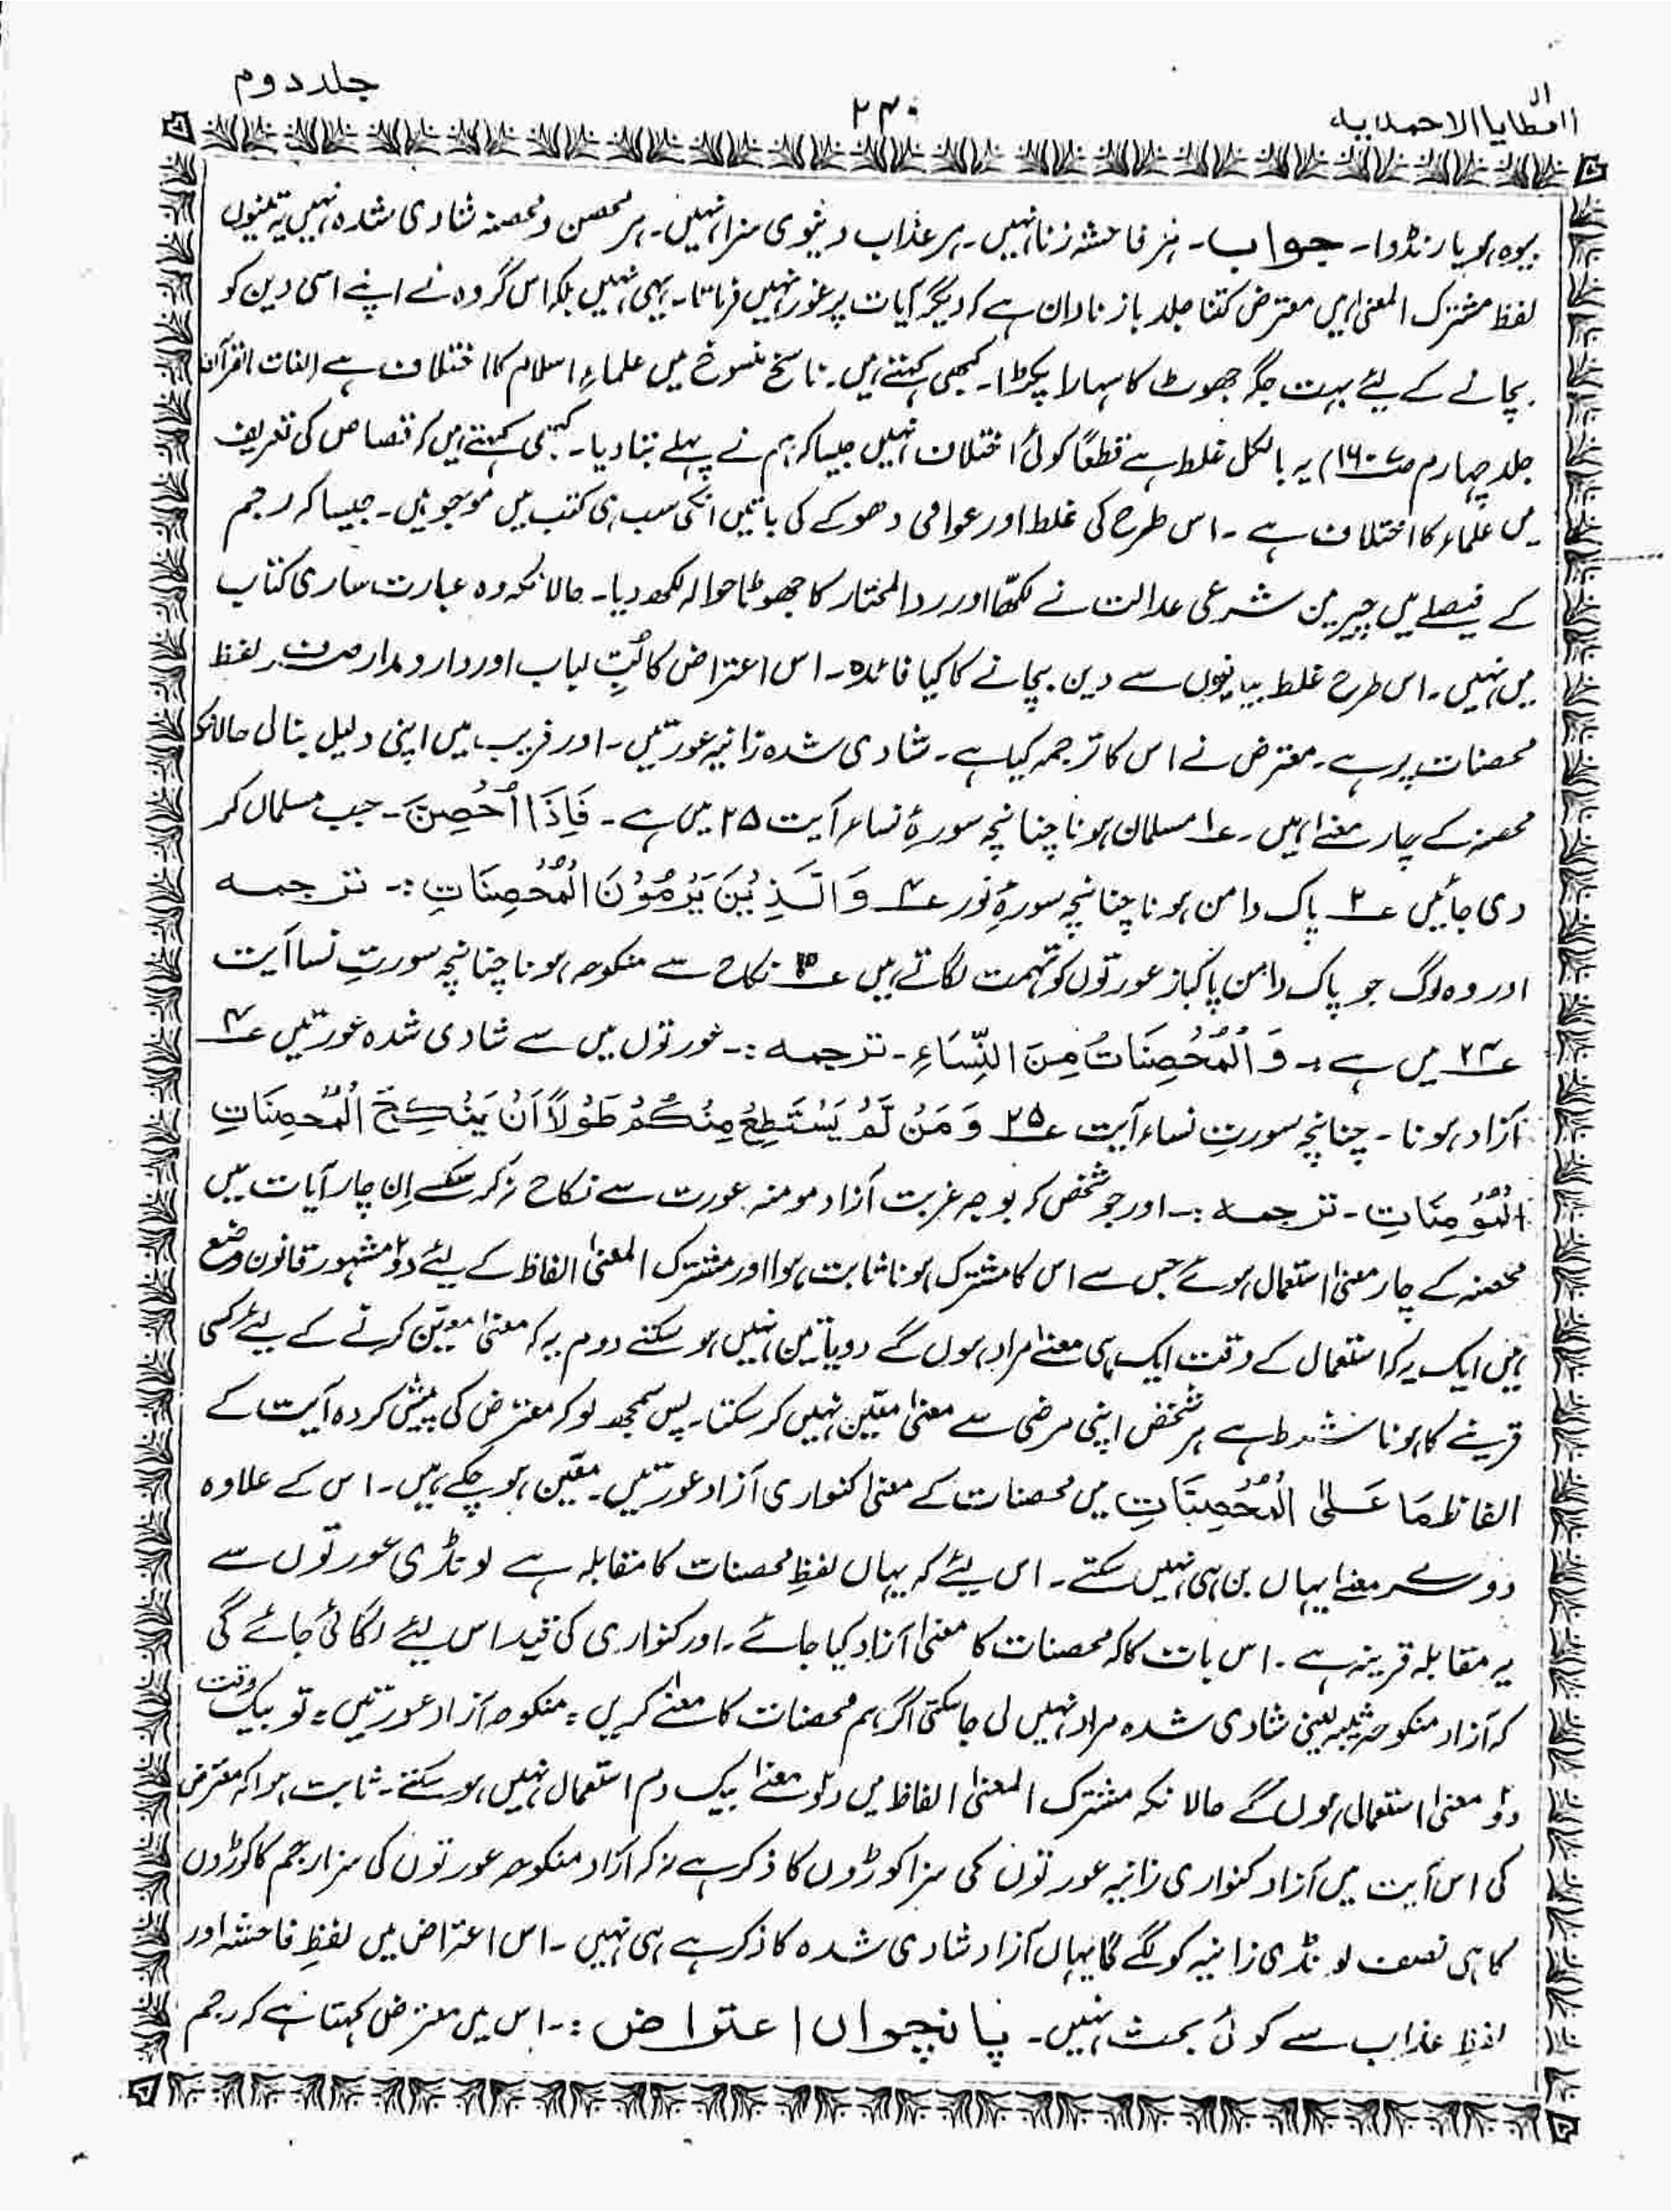 العطايا الاحمديه
۲۴۰
جلد دوم
بیوہ ہو یا رنڈوا۔ جواب۔ ہر فاحشہ زنا نہیں۔ ہر عذاب دنیوی سزا نہیں۔ ہر محصن و محصنہ شادی شدہ نہیں یہ تینوں
لفظ مشترک المعنیٰ ہیں معترض کتنا جلد باز نادان ہے کہ دیگر آیات پر غور نہیں فرماتا۔ یہی نہیں بلکہ اس گروہ نے اپنے اسی دین کو
بچانے کے لیئے بہت جگہ جھوٹ کا سہارا پکڑا۔ کبھی کہتے ہیں۔ ناسخ منسوخ میں علماءِ اسلام کا اختلاف ہے (لغات القرآن
جلد چہارم صـ۱۶۰) یہ بالکل غلط ہے قطعًا کوئی اختلاف نہیں جیسا کہ ہم نے پہلے بتا دیا۔ کبھی کہتے ہیں کہ قصاص کی تعریف
میں علماء کا اختلاف ہے ۔ اس طرح کی غلط اور عوامی دھوکے کی باتیں انکی سب ہی کتب میں موجود ہیں۔ جیسا کہ رجم
کے فیصلے میں چیرمین شرعی عدالت نے لکھا اور ردالمختار کا جھوٹا حوالہ لکھ دیا۔ حالانکہ وہ عبارت ساری کتاب
میں نہیں۔ اس طرح غلط بیانیوں سے دین بچانے کا کیا فائدہ۔ اس اعتراض کا لُبِّ لباب اور دارو مدار صرف لفظ
محصنات پر ہے۔ معترض نے اس کا ترجمہ کیا ہے۔ شادی شدہ زانیہ عورتیں۔ اور فریب میں اپنی دلیل بنالی حالانکہ
محصنہ کے چار معنےٰ ہیں۔ ؏۱ مسلمان ہونا چنانچہ سورۂ نساء آیت ۲۵ میں ہے۔ فَاِذَا اُحْصِنَّ۔ جب مسلمان کر
دی جائیں ؏۲ پاک دامن ہونا چنانچہ سورۂ نور ؏۴ وَالَّذِیْنَ یَرْمُوْنَ الْمُحْصِنَاتِ :۔ ترجمہ
اور وہ لوگ جو پاک دامن پاکباز عورتوں کو تہمت لگاتے ہیں ؏۳ نکاح سے منکوحہ ہونا چنانچہ سورتِ نسا آیت
؏۲۴ میں ہے :۔ وَالْمُحْصِنَاتُ مِنَ النِّسَاءِ۔ ترجمہ :۔ عورتوں میں سے شادی شدہ عورتیں ؏۴
آزاد ہونا۔ چنانچہ سورتِ نساء آیت ؏۲۵ وَمَنْ لَّمْ یَسْتَطِعْ مِنْکُمْ طَوْلًا اَنْ یَنْکِحَ الْمُحْصِنَاتِ
الْمُؤْمِنَاتِ۔ ترجمہ :۔ اور جو شخص کہ بوجہ غربت آزاد مومنہ عورت سے نکاح نہ کر سکے اِن چار آیات میں
محصنہ کے چار معنیٰ استعمال ہوئے جس سے اس کا مشترک ہونا ثابت ہوا اور مشترک المعنیٰ الفاظ کے لیئے دو مشہور قانون وضع
ہیں ایک یہ کہ استعمال کے وقت ایک ہی معنےٰ مراد ہوں گے دو یا تین نہیں ہو سکتے دوم یہ کہ معنیٰ معیّن کرنے کے لیئے کسی
قرینے کا ہونا شرط ہے ہر شخص اپنی مرضی سے معنیٰ معیّن نہیں کر سکتا۔ پس سمجھ لو کہ معترض کی پیش کردہ آیت کے
الفاظ مَا عَلیَ الْمُحْصِنَاتِ میں محصنات کے معنیٰ کنواری آزاد عورتیں۔ معیّن ہو چکے ہیں۔ اس کے علاوہ
دوسرے معنےٰ یہاں بن ہی نہیں سکتے۔ اس لیئے کہ یہاں لفظِ محصنات کا مقابلہ ہے لونڈی عورتوں سے
یہ مقابلہ قرینہ ہے۔ اس بات کا کہ محصنات کا معنیٰ آزاد کیا جائے۔ اور کنواری کی قید اس لیئے لگائی جائے گی
کہ آزاد منکوحہ ثیبہ یعنی شادی شدہ مراد نہیں لی جاسکتی اگر ہم محصنات کا معنےٰ کریں۔ منکوحہ آزاد عورتیں۔ تو بیک وقت
دو معنیٰ استعمال ہوں گے حالانکہ مشترک المعنیٰ الفاظ میں دو معنےٰ بیک دم استعمال نہیں ہو سکتے۔ ثابت ہوا کہ معترض
کی اس آیت میں آزاد کنواری زانیہ عورتوں کی سزا کوڑوں کا ذکر ہے نہ کہ آزاد منکوحہ عورتوں کی سزا رجم کا کوڑوں
کا ہی نصف لونڈی زانیہ کو لگے گا یہاں آزاد شادی شدہ کا ذکر ہے ہی نہیں۔ اس اعتراض میں لفظِ فاحشہ اور
لفظِ عذاب سے کوئی بحث نہیں۔ پانچواں اعتراض :۔ اس میں معترض کہتا ہے کہ رجم